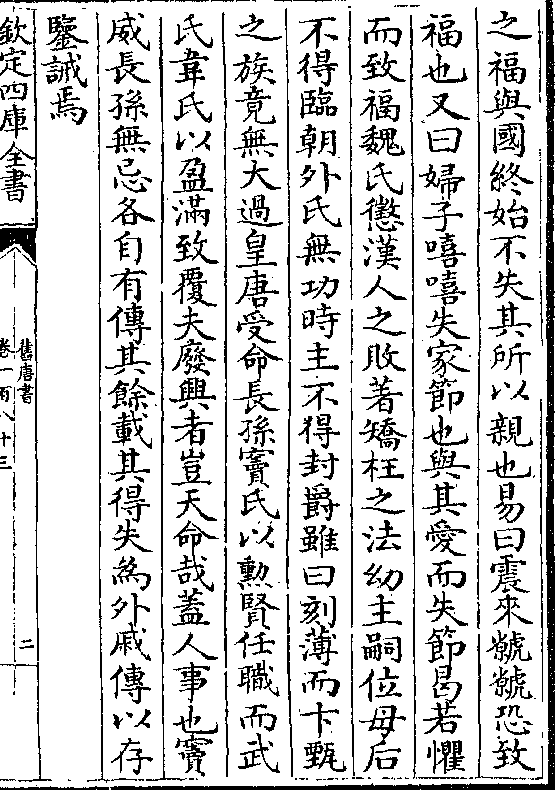 之福與國終始不失其所以親也易曰震來虩虩恐致
福也又曰婦子嘻嘻失家節也與其愛而失節曷若懼
而致福魏氏懲漢人之敗著矯枉之法幼主嗣位母后
不得臨朝外氏無功時主不得封爵雖曰刻薄而卞甄
之族竟無大過皇唐受命長孫竇氏以勲賢任職而武
氏韋氏以盈滿致覆夫廢興者豈天命哉蓋人事也竇
威長孫無忌各自有傳其餘載其得失為外戚傳以存
鑒誡焉
欽定四庫全書
舊唐書
卷一百八十三
二